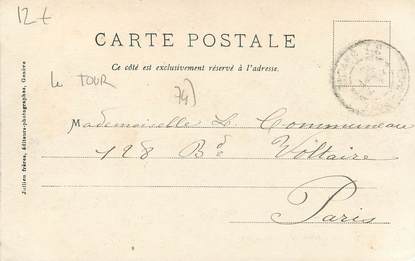 12 €
CARTE POSTALE
Ce côté est exclusivement réservé à l'adresse.
le TOUR
74)
Jullien frères, éditeurs-photographes, Genève
Mademoiselle L. Communeau
128 Bd Voltaire
Paris